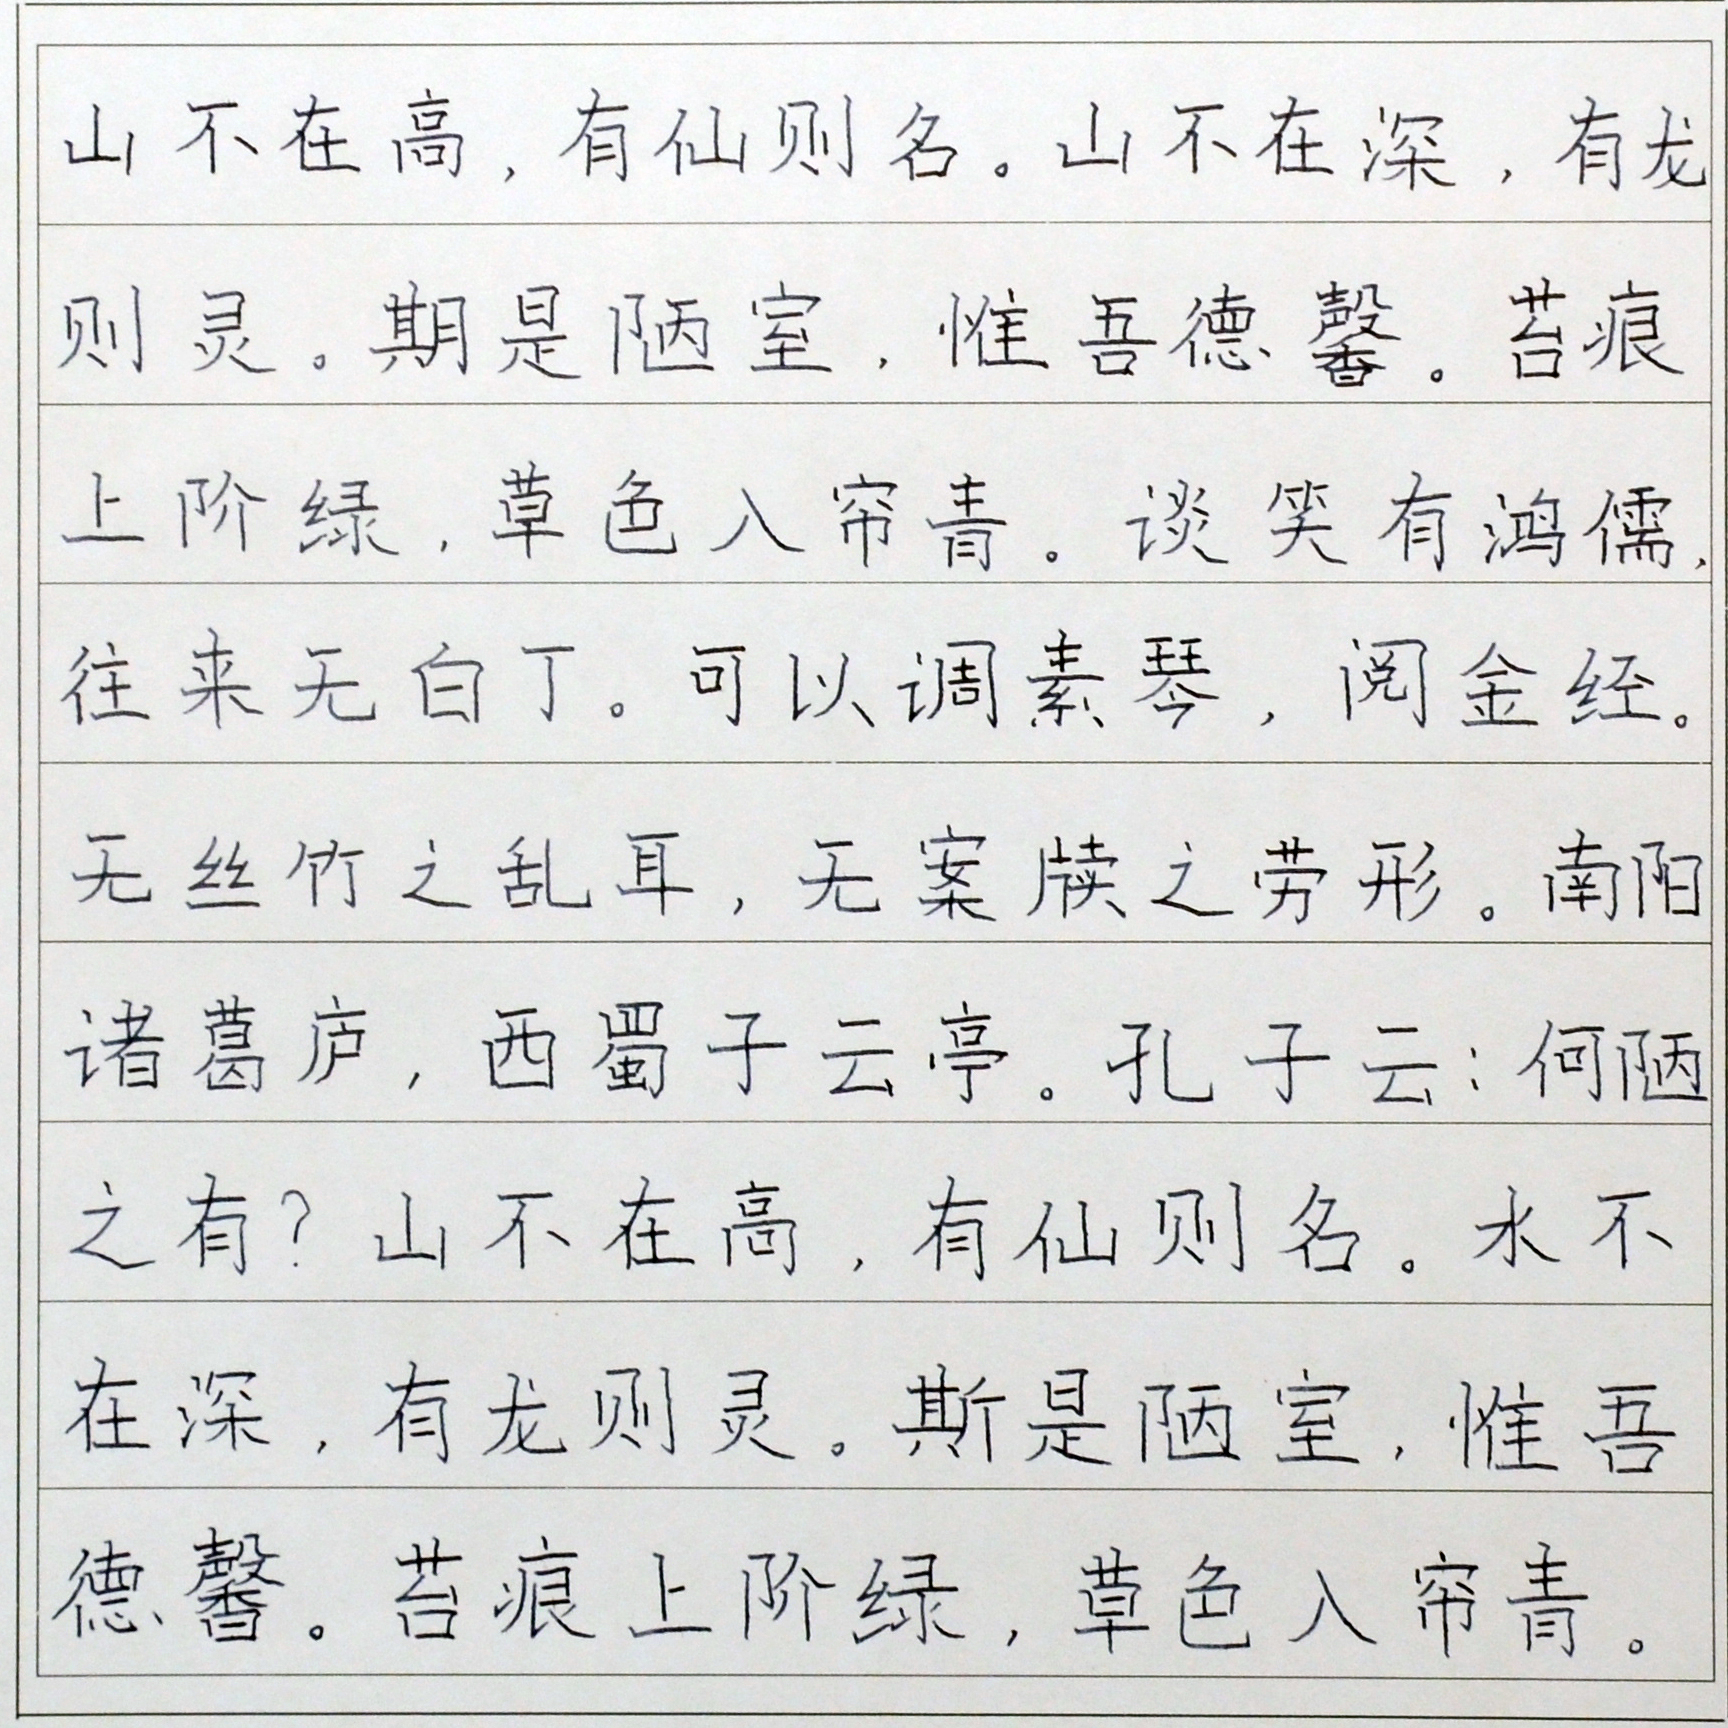 山不在高，有仙则名。山不在深，有龙
则灵。期是陋室，惟吾德馨。苔痕
上阶绿，草色入帘青。谈笑有鸿儒，
往来无白丁。可以调素琴，阅金经。
无丝竹之乱耳，无案牍之劳形。南阳
诸葛庐，西蜀子云亭。孔子云：何陋
之有？山不在高，有仙则名。水不
在深，有龙则灵。斯是陋室，惟吾
德馨。苔痕上阶绿，草色入帘青。